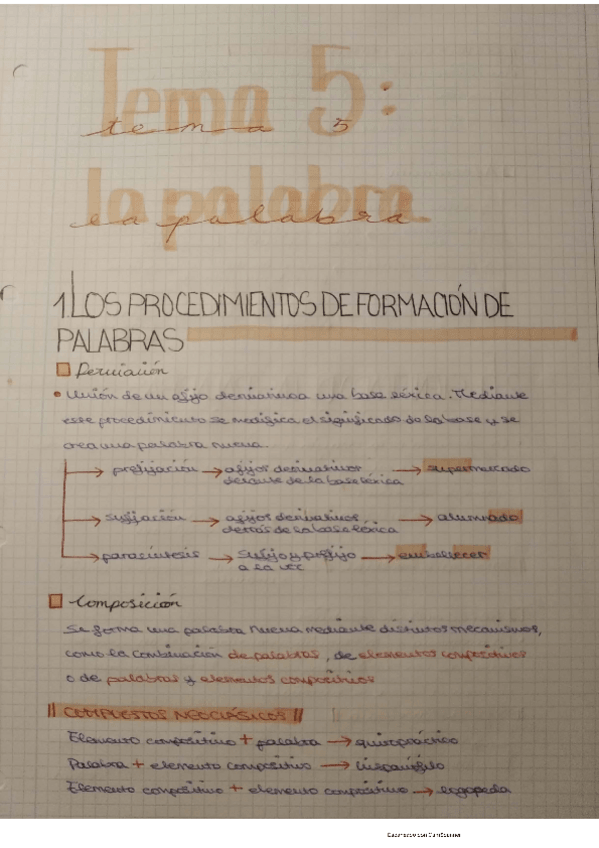 Tema 5:
tema 5
la palabra
la palabra
1. LOS PROCEDIMIENTOS DE FORMACIÓN DE
PALABRAS
Derivación
• Unión de un afijo derivativo a una base léxica. Mediante
este procedimiento se modifica el significado de la base y se
crea una palabra nueva.
prefijación → afijos derivativos → supermercado
delante de la base léxica
sufijación → afijos derivativos → alumnado
detrás de la base léxica
parasíntesis → sufijo y prefijo → embellecer
a la vez
Composición
Se forma una palabra nueva mediante distintos mecanismos,
como la combinación de palabras, de elementos compositivos
o de palabras y elementos compositivos
COMPUESTOS NEOCLÁSICOS
Elemento compositivo + palabra → quiropráctico
Palabra + elemento compositivo → hispanófilo
Elemento compositivo + elemento compositivo → logopedia
Escaneado con CamScanner